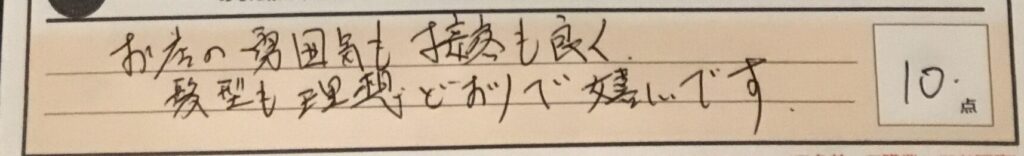 お店の雰囲気も接客も良く、
髪型も理想どおりで嬉しいです.
10.
点